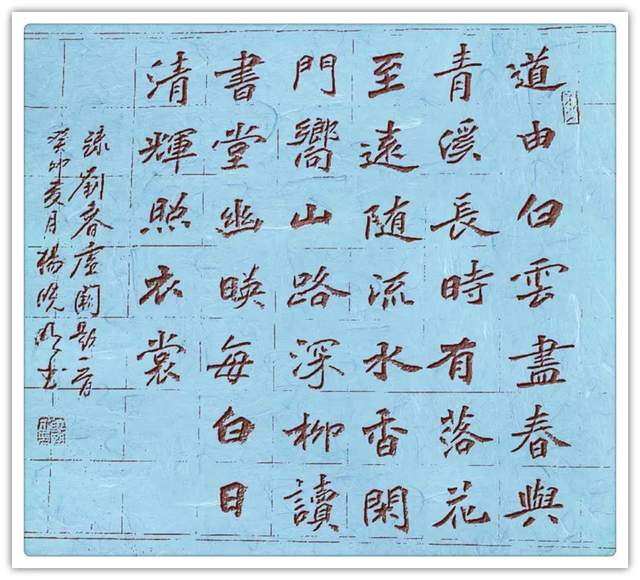 道由白雲盡春與
青溪長時有落花
至遠随流水香閑
門嚮山路深柳讀
書堂幽暎每白日
清輝照衣裳
錄劉眘虛闕題一首
癸卯夏月楊曉明书